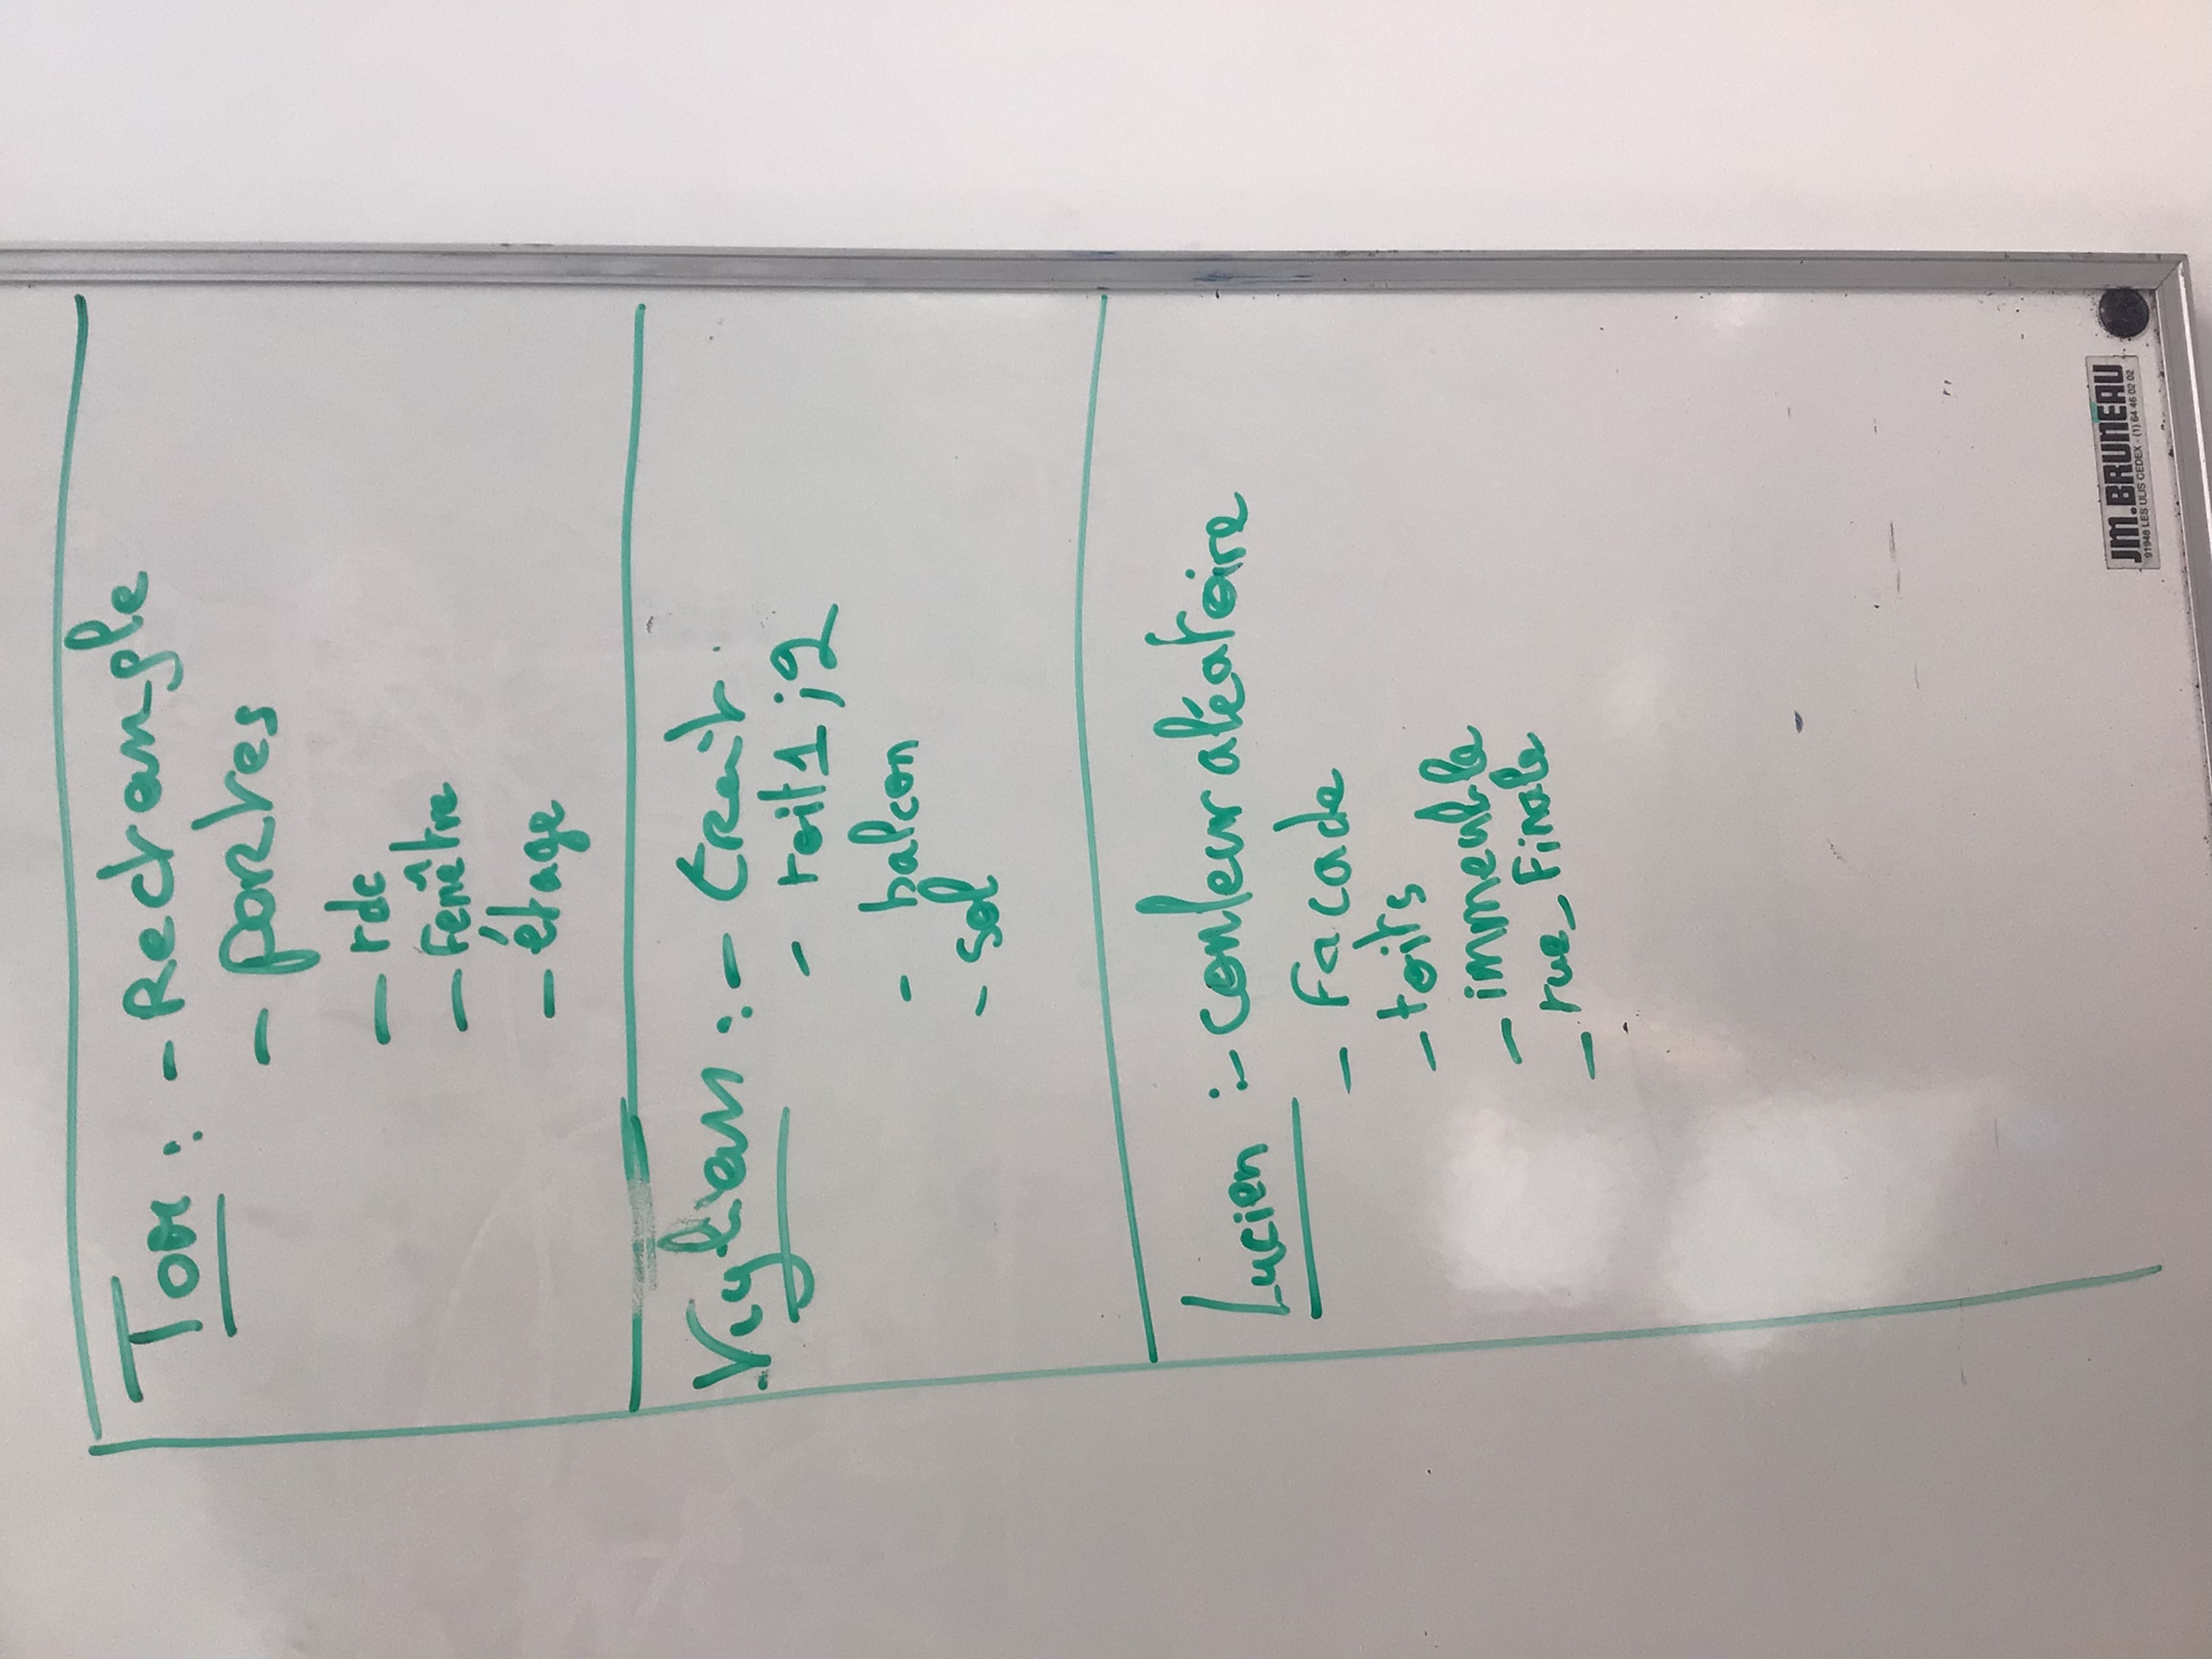 Tom : - Rectangle
- portes
- rdc
- Fenêtre
- étage
: - trait
- toit1 ; 2
- balcon
- sol
Lucien : - couleur aléatoire
- Facade
- toits
- immeuble
- rue_Finale
JM.BRUNEAU
91948 LES ULIS CEDEX - (1) 64 46 02 02